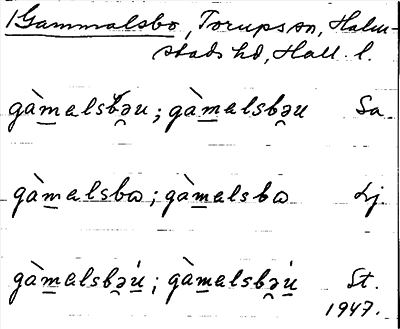 1 Gammalsbo, Torups sn, Halm-
stads hd, Hall. l.
gàm̲alsbə̯u; gàm̲alsbə̯u Sa.
gàm̲alsbɷ; gàm̲alsbɷ Lj.
gàm̲alsbə̯ú̲; gàm̲alsbə̯ú̲ St.
1947.